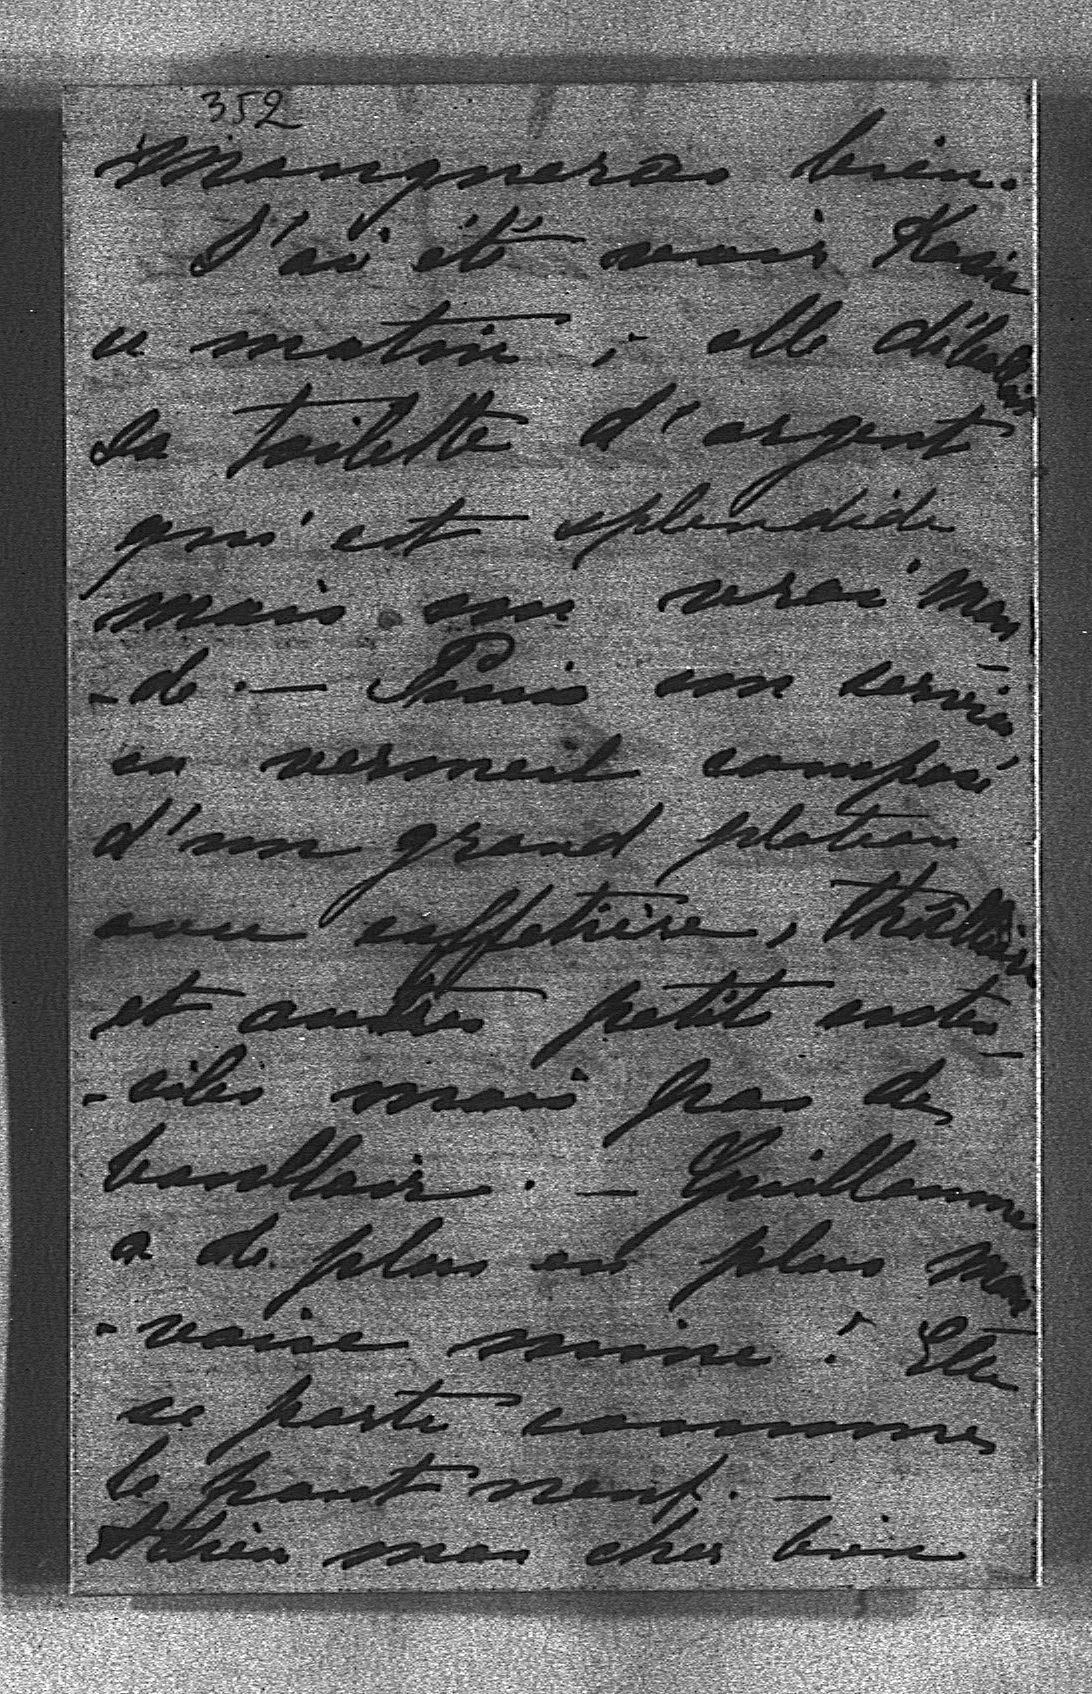 352
manqueras bien.
J'ai été voir
ce matin, elle
sa toilette d'argent
qui est splendide
mais un vrai mon
-de. — Puis un service
en vermeil composé
d'un grand plateau
avec caffetière,
et autres petit usten
-siles mais pas de
bouilloir. — Guillaume
a de plus en plus mau
-vaise mine. Elle
se porte comme
le pont neuf. —
Adieu mon cher bien